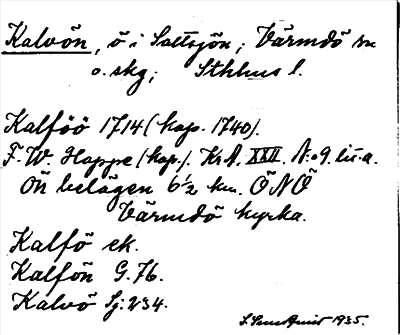 Kalvön, ö i Saltsjön; Värmdö sn
o. skg; Sthlms l.
Kalföö 1714 (kop. 1740).
F. W. Happe (kop.). KrA. XXII. N:o 9. lit. a.
Ön belägen 6½ km. ÖNÖ
Värmdö kyrka.
Kalfö ek.
Kalfön G. 76.
Kalvö Sj: 234.
1935.